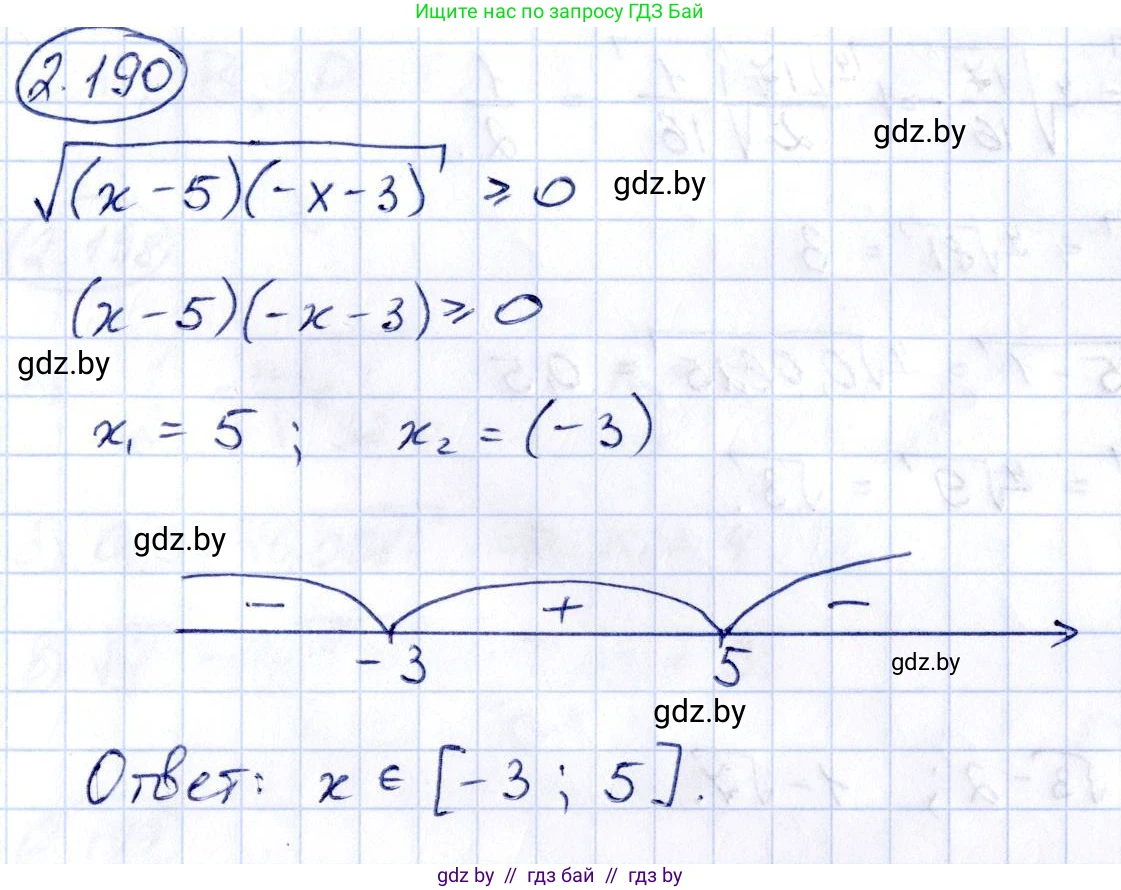 Ищите нас по запросу ГДЗ Бай
2.190
gdz.by
√(x-5)(-x-3) ≥ 0 gdz.by
(x-5)(-x-3) ≥ 0
gdz.by
x₁ = 5 ; x₂ = (-3)
gdz.by
− + −
-3 5 gdz.by
gdz.by
Ответ: x ∈ [-3 ; 5].
gdz by // гдз бай // гдз by